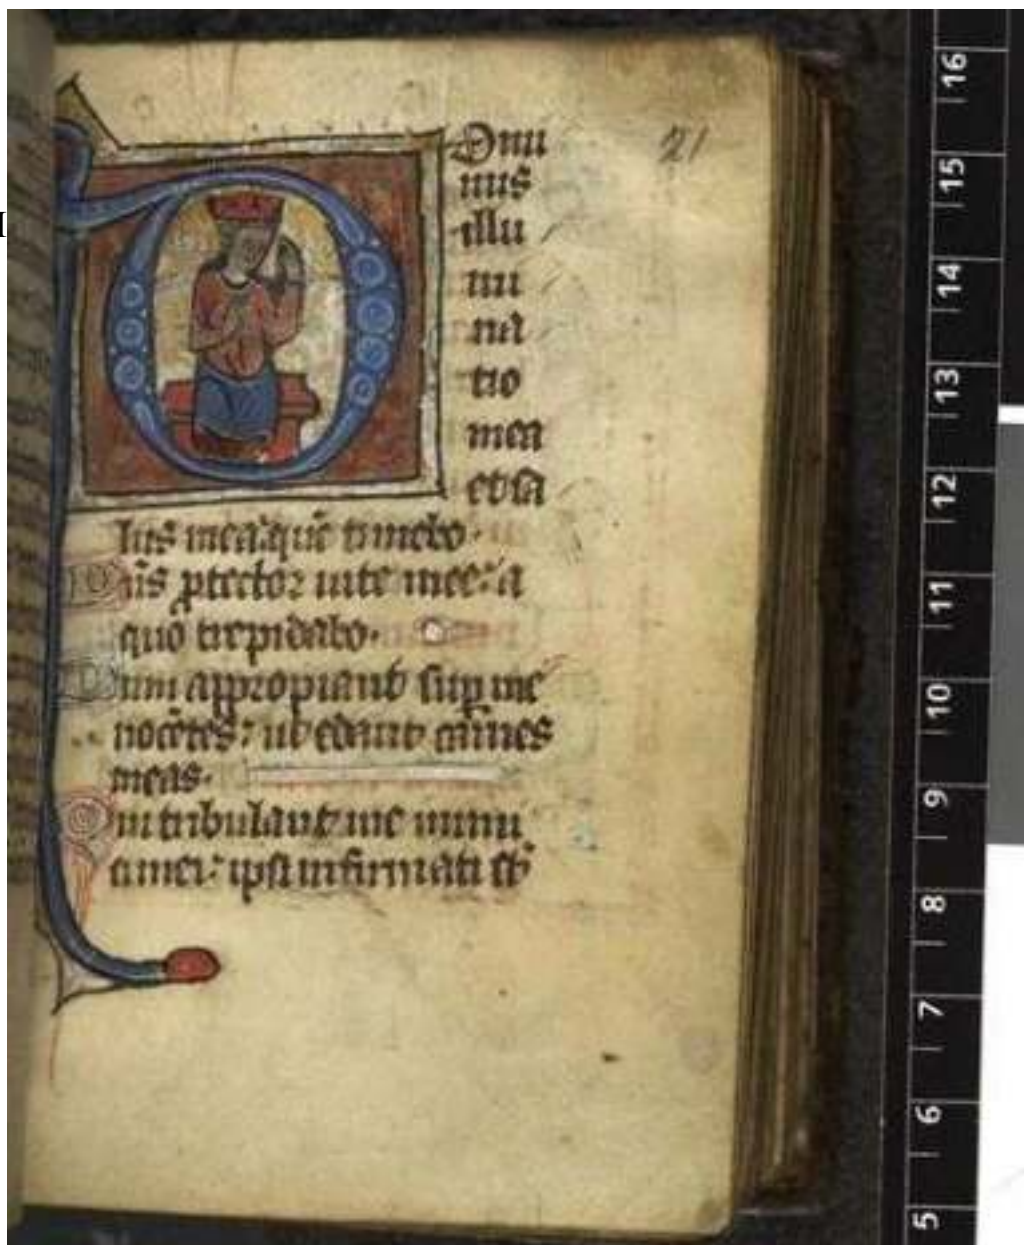 21
Domi
nus
illu
mi
na
tio
mea
et sa
lus mea: quē timebo.
Dn̄s ꝓtector uite mee: a
quo trepidabo.
Dum appropiant sup̱ me
nocētes: ut edant carnes
meas.
Qui tribulant me inimi
ci mei: ipsi infirmati st̄
16
15
14
13
12
11
10
9
8
7
6
5